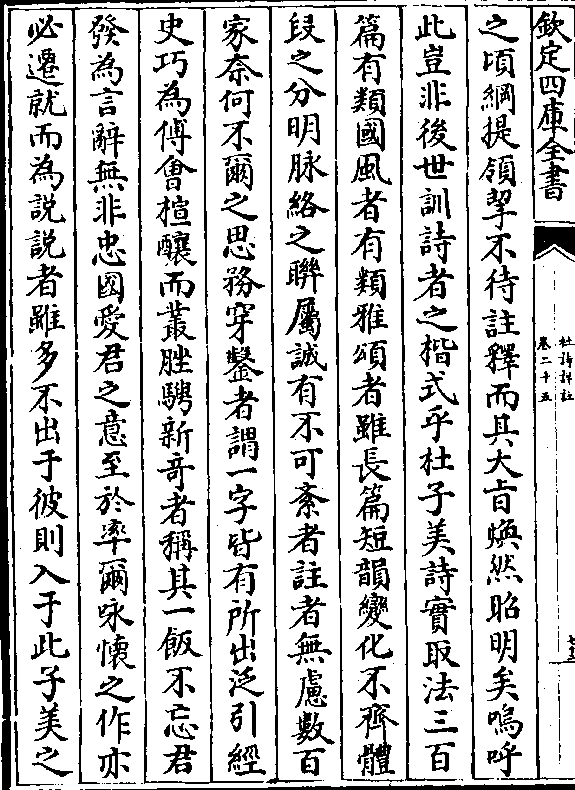 欽定四庫全書
杜詩詳註
卷二十五
之頃綱提領挈不待註釋而其大旨煥然昭明矣嗚呼
此豈非後世訓詩者之楷式乎杜子美詩實取法三百
篇有類國風者有類雅頌者雖長篇短韻變化不齊體
段之分明脉絡之聯屬誠有不可紊者註者無慮數百
家奈何不爾之思務穿鑿者謂一字皆有所出泛引經
史巧為傅會楦釀而叢脞騁新奇者稱其一飯不忘君
發為言辭無非忠國愛君之意至於率爾咏懷之作亦
必遷就而為説説者雖多不出于彼則入于此子美之